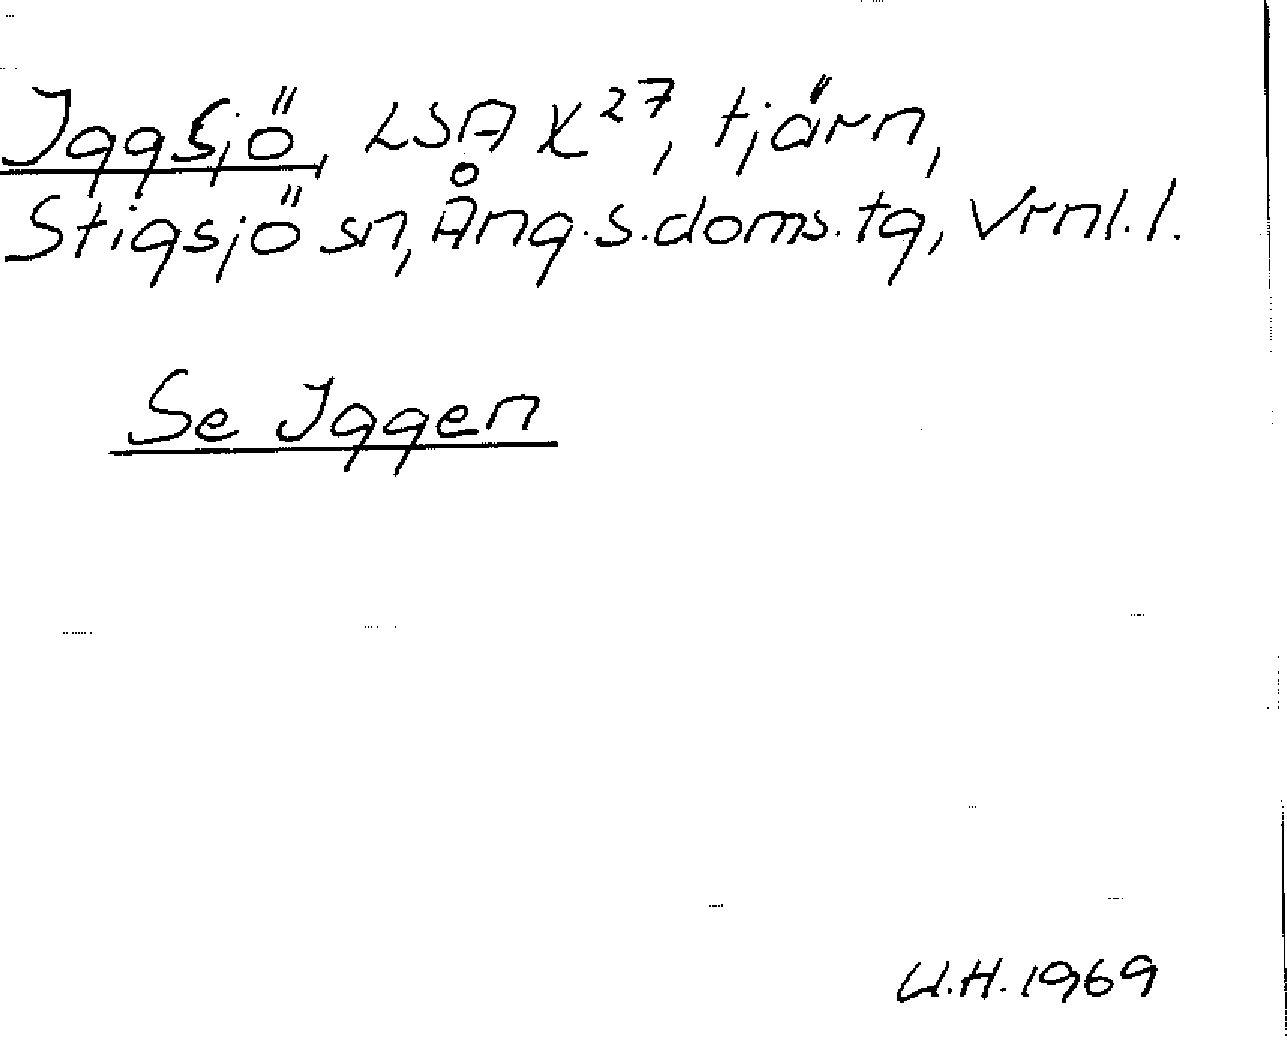 Iggsjö, LSA X²⁷, tjärn,
Stigsjö sn, Ång.s.doms.tg, Vrnl.l.
Se Iggen
U.H. 1969